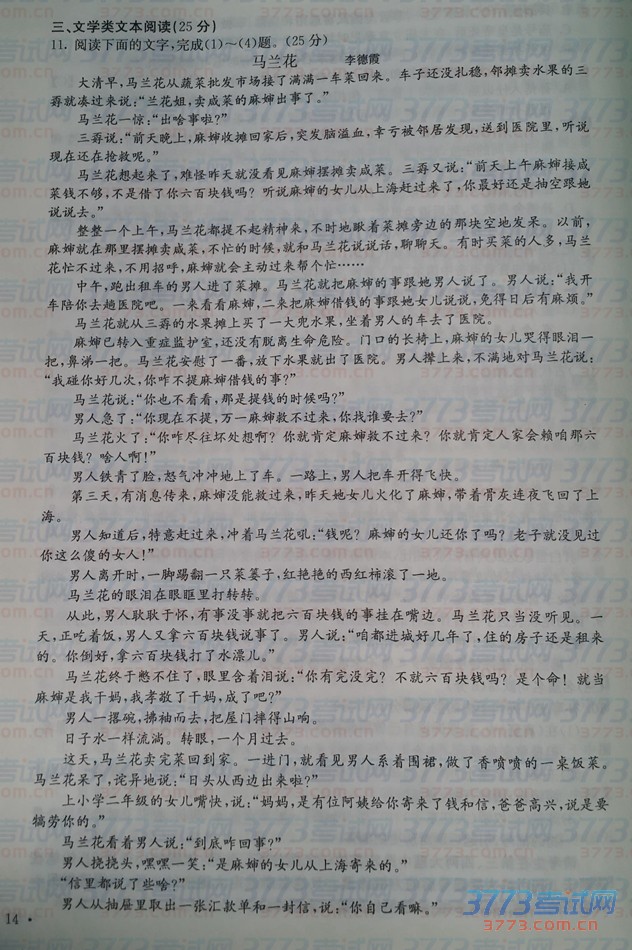 三、文学类文本阅读(25 分)
11. 阅读下面的文字,完成(1)～(4)题。(25 分)
马兰花 李德霞
大清早,马兰花从蔬菜批发市场接了满满一车菜回来。车子还没扎稳,邻摊卖水果的三
孬就凑过来说:“兰花姐,卖咸菜的麻婶出事了。”
马兰花一惊:“出啥事啦?”
三孬说:“前天晚上,麻婶收摊回家后,突发脑溢血,幸亏被邻居发现,送到医院里,听说
现在还在抢救呢。”
马兰花想起来了,难怪昨天就没看见麻婶摆摊卖咸菜。三孬又说:“前天上午麻婶接咸
菜钱不够,不是借了你六百块钱吗? 听说麻婶的女儿从上海赶过来了,你最好还是抽空跟她
说说去。”
整整一个上午,马兰花都提不起精神来,不时地瞅着菜摊旁边的那块空地发呆。以前,
麻婶就在那里摆摊卖咸菜,不忙的时候,就和马兰花说说话,聊聊天。有时买菜的人多,马兰
花忙不过来,不用招呼,麻婶就会主动过来帮个忙……
中午,跑出租车的男人进了菜摊。马兰花就把麻婶的事跟她男人说了。男人说:“我开
车陪你去趟医院吧。一来看看麻婶,二来把麻婶借钱的事跟她女儿说说,免得日后有麻烦。”
马兰花就从三孬的水果摊上买了一大兜水果,坐着男人的车去了医院。
麻婶已转入重症监护室,还没有脱离生命危险。门口的长椅上,麻婶的女儿哭得眼泪一
把,鼻涕一把。马兰花安慰了一番,放下水果就出了医院。男人撵上来,不满地对马兰花说:
“我碰你好几次,你咋不提麻婶借钱的事?”
马兰花说:“你也不看看,那是提钱的时候吗?”
男人急了:“你现在不提,万一麻婶救不过来,你找谁要去?”
马兰花火了:“你咋尽往坏处想啊? 你就肯定麻婶救不过来? 你就肯定人家会赖咱那六
百块钱? 啥人啊!”
男人铁青了脸,怒气冲冲地上了车。一路上,男人把车开得飞快。
第三天,有消息传来,麻婶没能救过来,昨天她女儿火化了麻婶,带着骨灰连夜飞回了上
海。
男人知道后,特意赶过来,冲着马兰花吼:“钱呢? 麻婶的女儿还你了吗? 老子就没见过
你这么傻的女人!”
男人离开时,一脚踢翻一只菜篓子,红艳艳的西红柿滚了一地。
马兰花的眼泪在眼眶里打转转。
从此,男人耿耿于怀,有事没事就把六百块钱的事挂在嘴边。马兰花只当没听见。一
天,正吃着饭,男人又拿六百块钱说事了。男人说:“咱都进城好几年了,住的房子还是租来
的。你倒好,拿六百块钱打了水漂儿。”
马兰花终于憋不住了,眼里含着泪说:“你有完没完? 不就六百块钱吗? 是个命! 就当
麻婶是我干妈,我孝敬了干妈,成了吧?”
男人一撂碗,拂袖而去,把屋门摔得山响。
日子水一样流淌。转眼,一个月过去。
这天,马兰花卖完菜回到家。一进门,就看见男人系着围裙,做了香喷喷的一桌饭菜。
马兰花呆了,诧异地说:“日头从西边出来啦?”
上小学二年级的女儿嘴快,说:“妈妈,是有位阿姨给你寄来了钱和信,爸爸高兴,说是要
犒劳你的。”
马兰花看着男人说:“到底咋回事?”
男人挠挠头,嘿嘿一笑:“是麻婶的女儿从上海寄来的。”
“信里都说了些啥?”
男人从抽屉里取出一张汇款单和一封信,说:“你自己看嘛。”
14 •
3773考试网
3773.com.cn